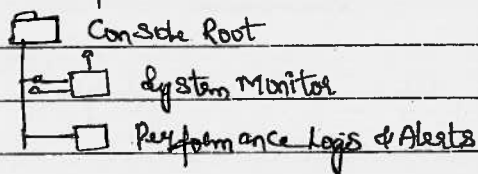 Console Root
System Monitor
Performance Logs & Alerts